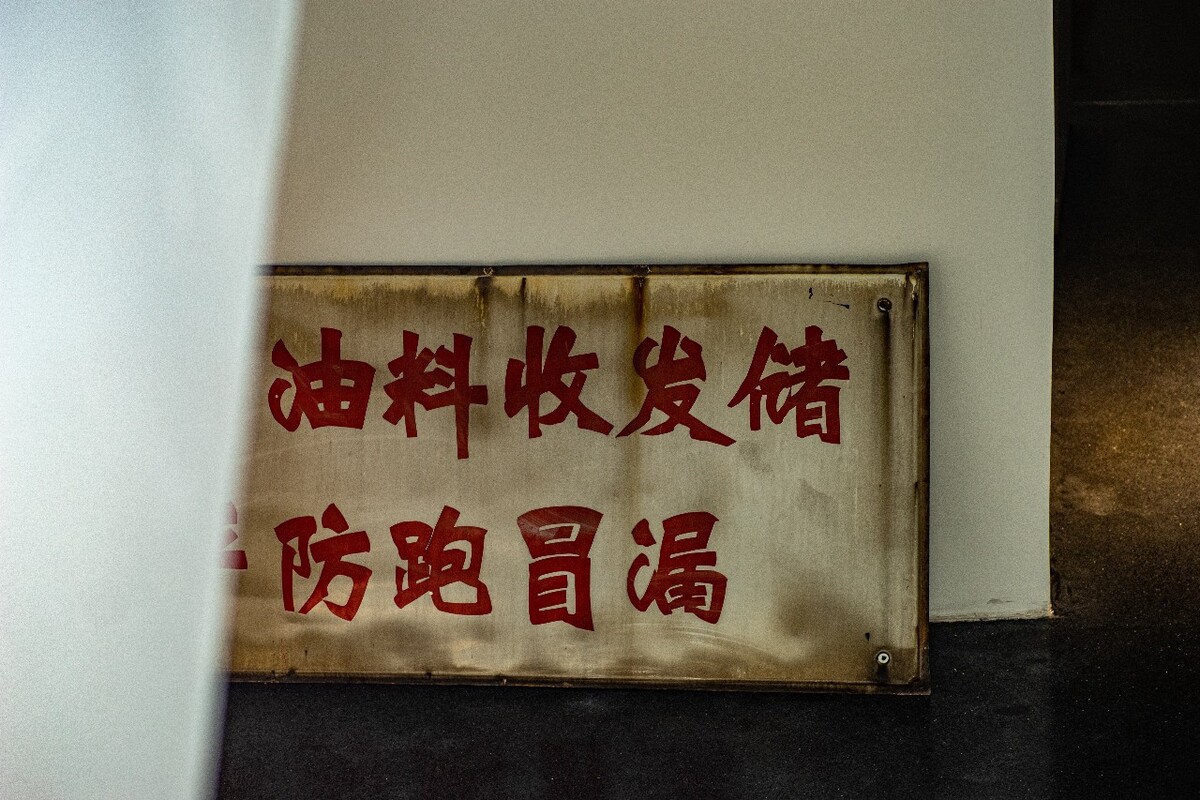 油料收发储
防跑冒漏